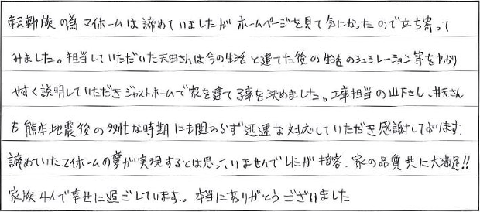 転勤族の為マイホームは諦めていましたがホームページを見て気になったので立ち寄って
みました。担当していただいた天田さんは今の生活と建てた後の生活のシュミレーション等わかり
やすく説明していただきジャストホームで家を建てる事を決めました。工事担当の山下さん、
も熊本地震後の多忙な時期にも関わらず迅速な対応していただき感謝しております。
諦めていたマイホームの夢が実現するとは思っていませんでしたが接客、家の品質共に大満足!!
家族4人で幸せに過ごしています。本当にありがとうございました